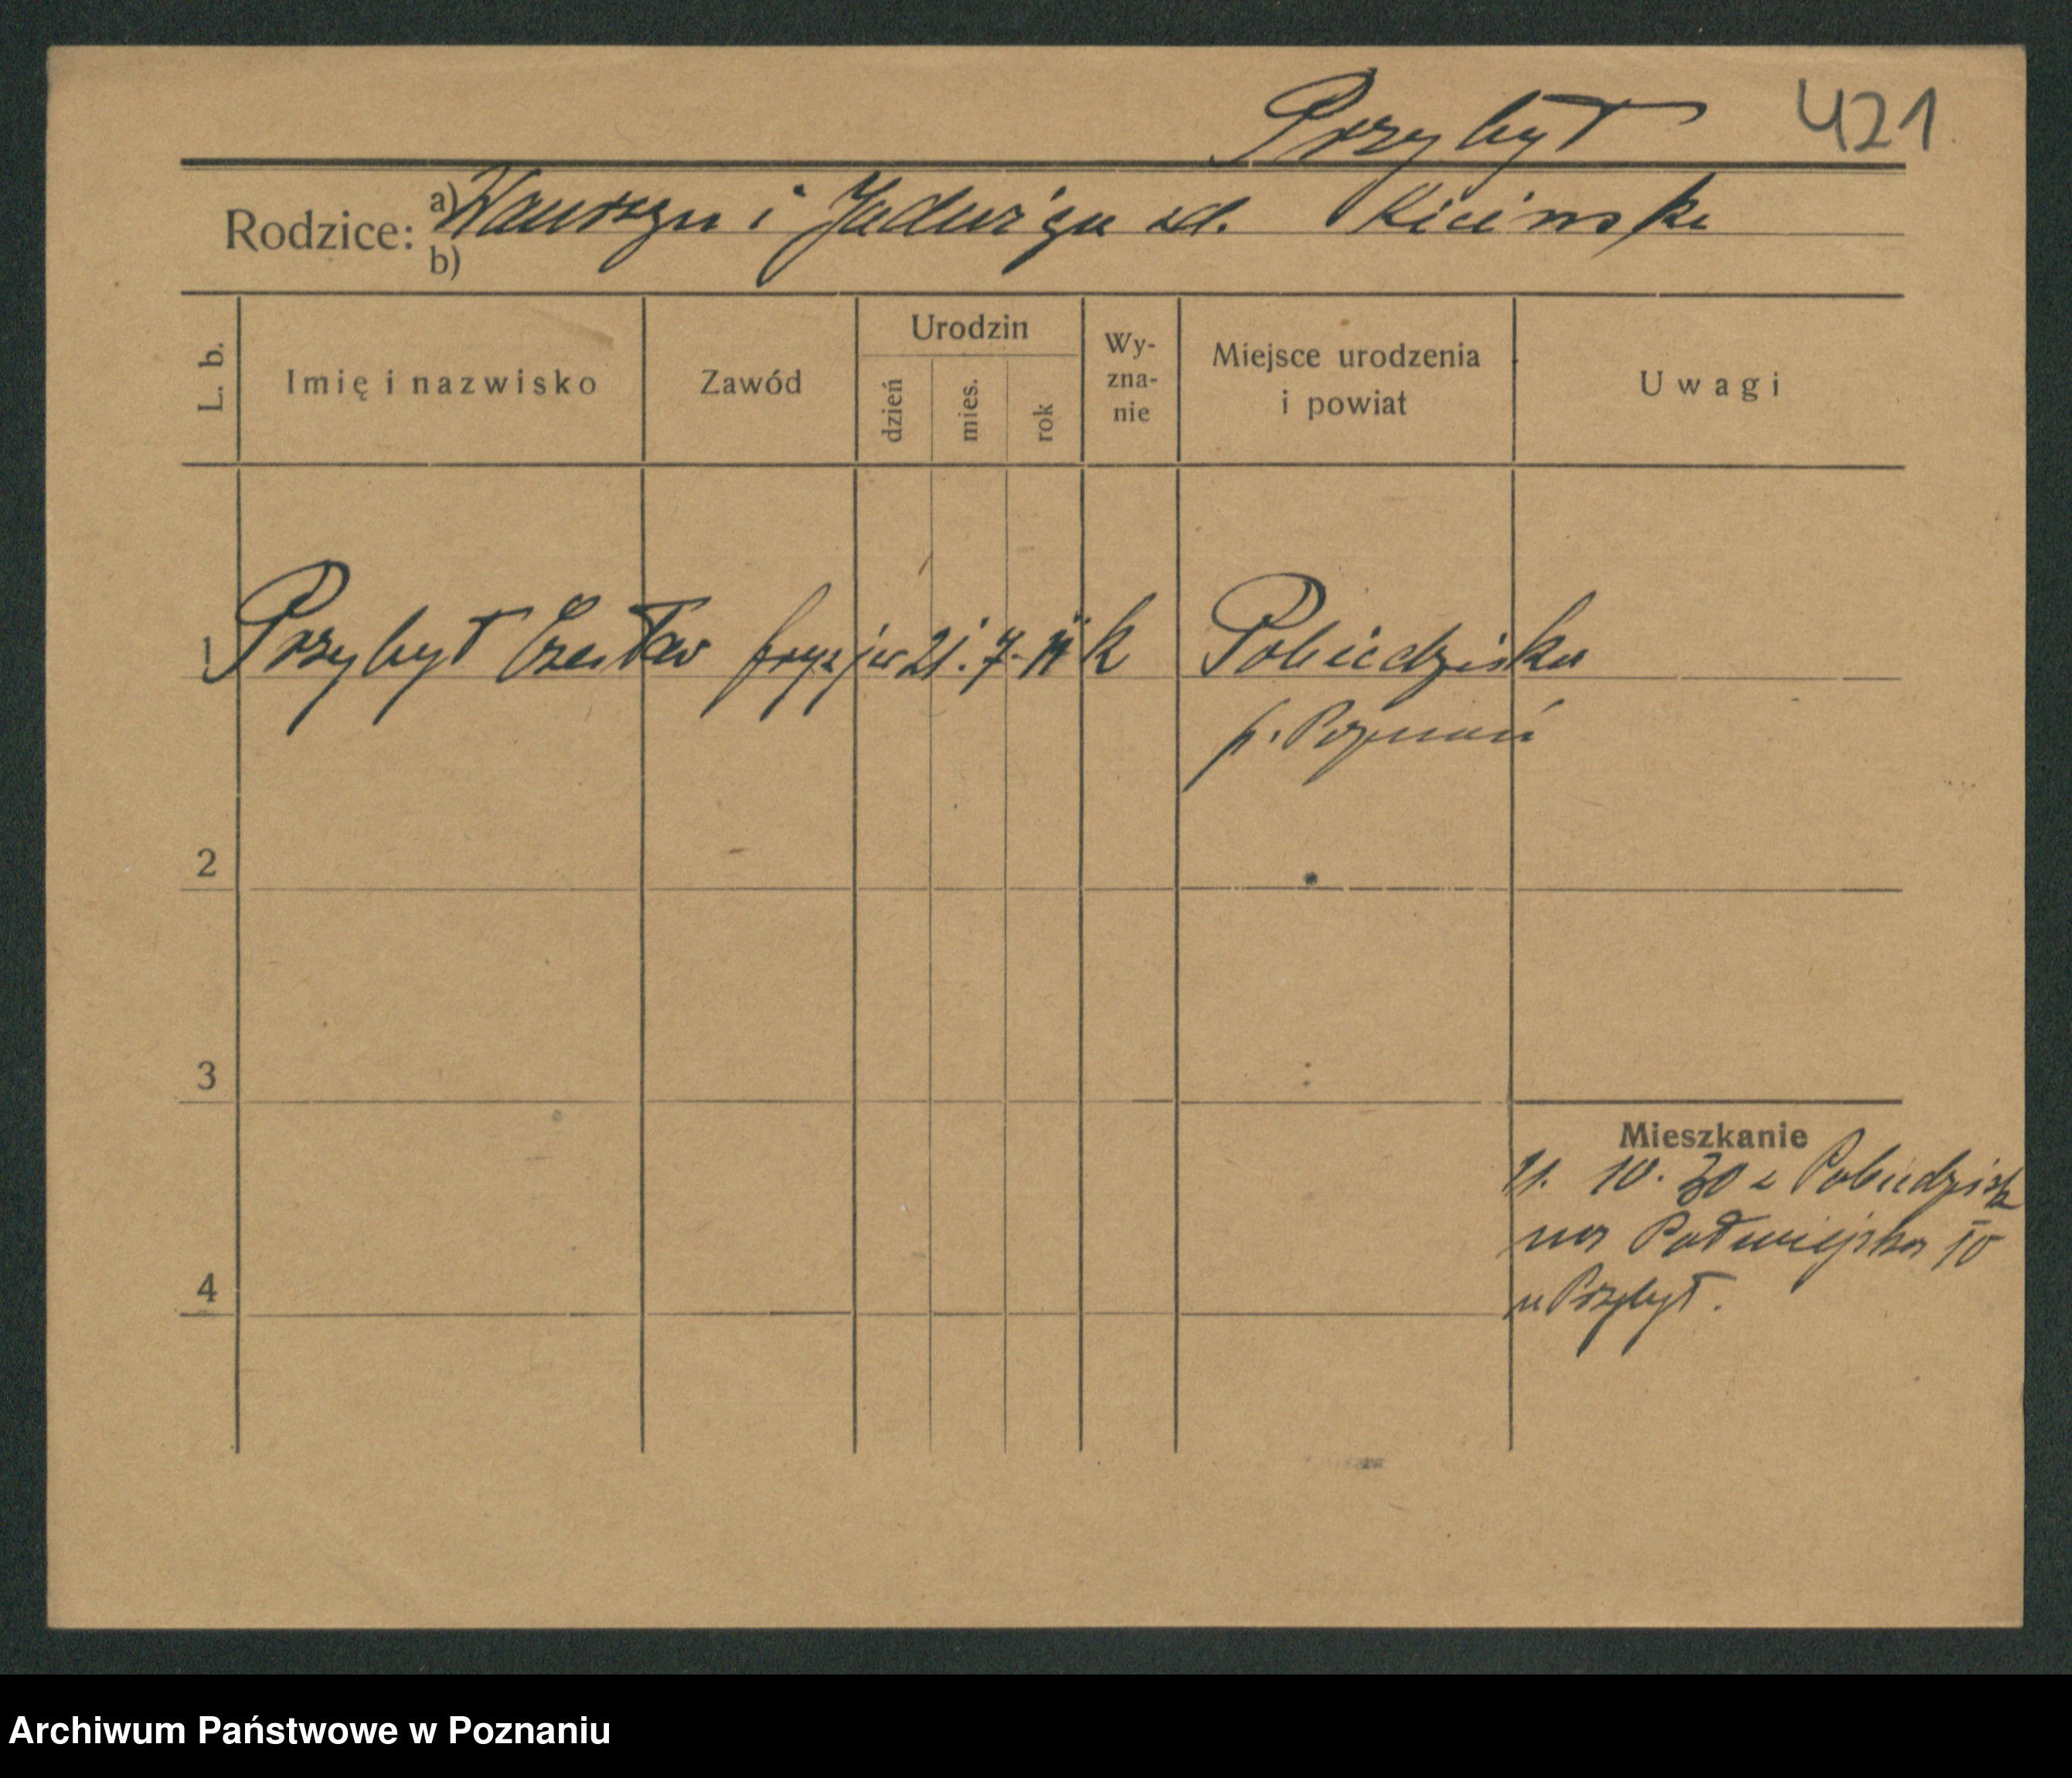 Przybył 421
Rodzice: a) Wawrzyn i Jadwiga zd. Kicińska
b)
L. b. Imię i nazwisko Zawód Urodzin dzień mies. rok Wy-zna-nie Miejsce urodzenia i powiat Uwagi
1 Przybył Czesław fryzjer 21. 7. 11 k Pobiedziska
p. Poznań
2
3
Mieszkanie
11. 10. 30 z Pobiedzisk
na
4
u Przybył.
Archiwum Państwowe w Poznaniu